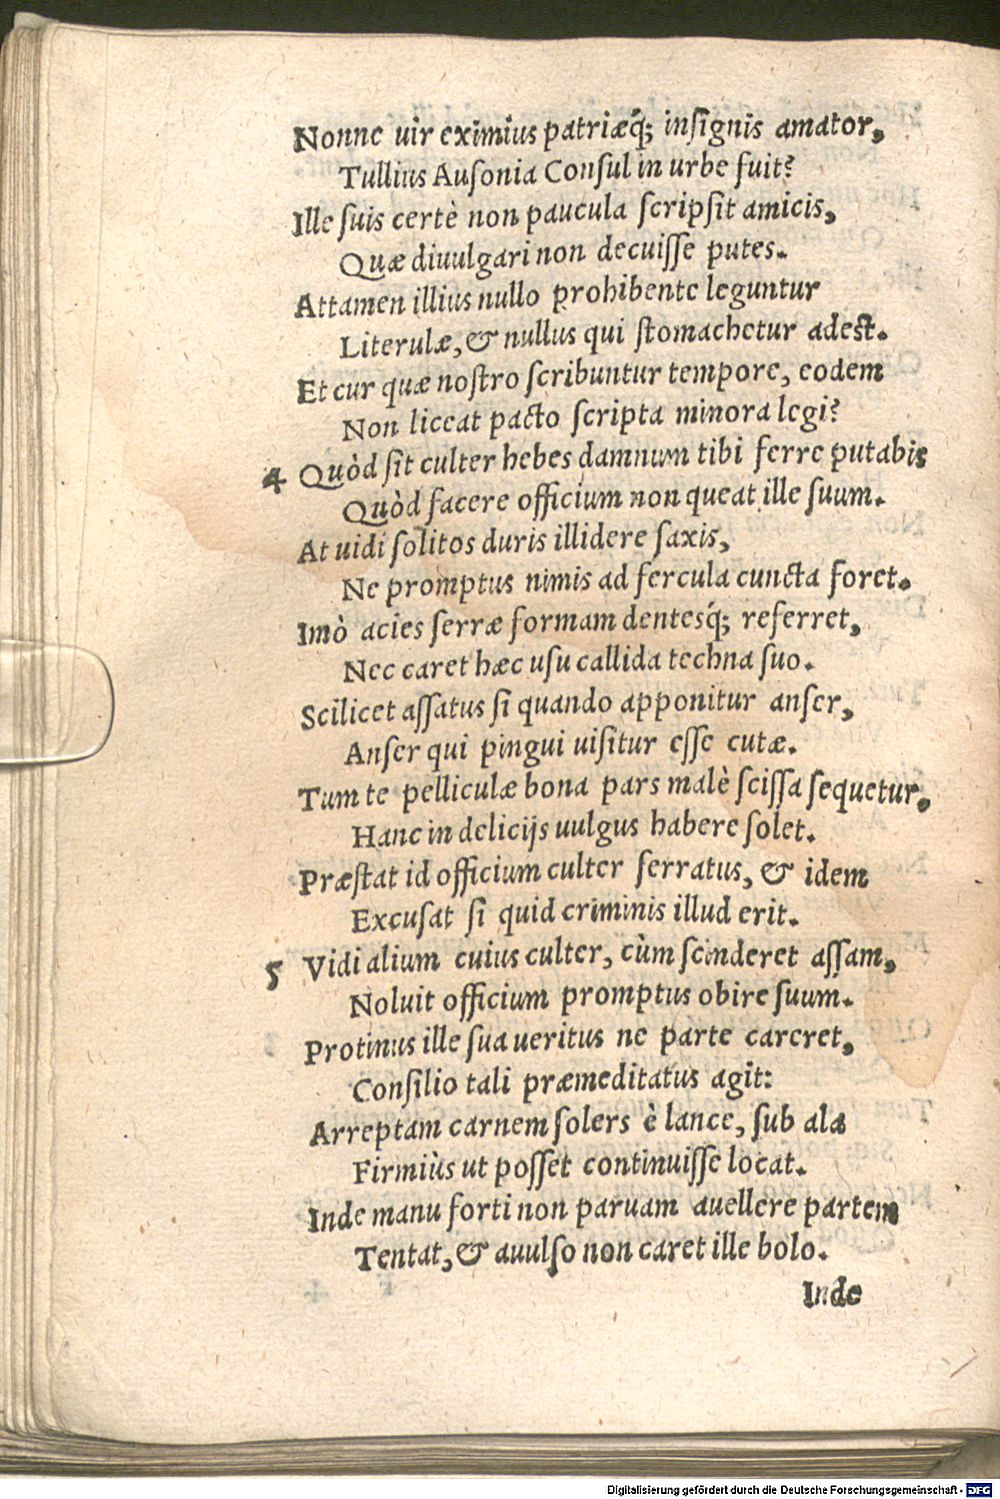 Nonne uir eximius patriæq́; insignis amator,
Tullius Ausonia Consul in urbe fuit?
Ille suis certè non paucula scripsit amicis,
Quæ diuulgari non decuisse putes.
Attamen illius nullo prohibente leguntur
Literulæ, & nullus qui stomachetur adest.
Et cur quæ nostro scribuntur tempore, eodem
Non liceat pacto scripta minora legi?
4 Quòd sit culter hebes damnum tibi ferre putabis
Quòd facere officium non queat ille suum.
At uidi solitos duris illidere saxis,
Ne promptus nimis ad fercula cuncta foret.
Imò acies serræ formam dentesq́; referret,
Nec caret hæc usu callida techna suo.
Scilicet assatus si quando apponitur anser,
Anser qui pingui uisitur esse cutæ.
Tum te pelliculæ bona pars malè scissa sequetur,
Hanc in delicijs uulgus habere solet.
Præstat id officium culter serratus, & idem
Excusat si quid criminis illud erit.
5 Vidi alium cuius culter, cùm scinderet assam,
Noluit officium promptus obire suum.
Protinus ille sua ueritus ne parte careret,
Consilio tali præmeditatus agit:
Arreptam carnem solers è lance, sub ala
Firmiùs ut posset continuisse locat.
Inde manu forti non paruam auellere partem
Tentat, & auulso non caret ille bolo.
Inde
Digitalisierung gefördert durch die Deutsche Forschungsgemeinschaft - DFG